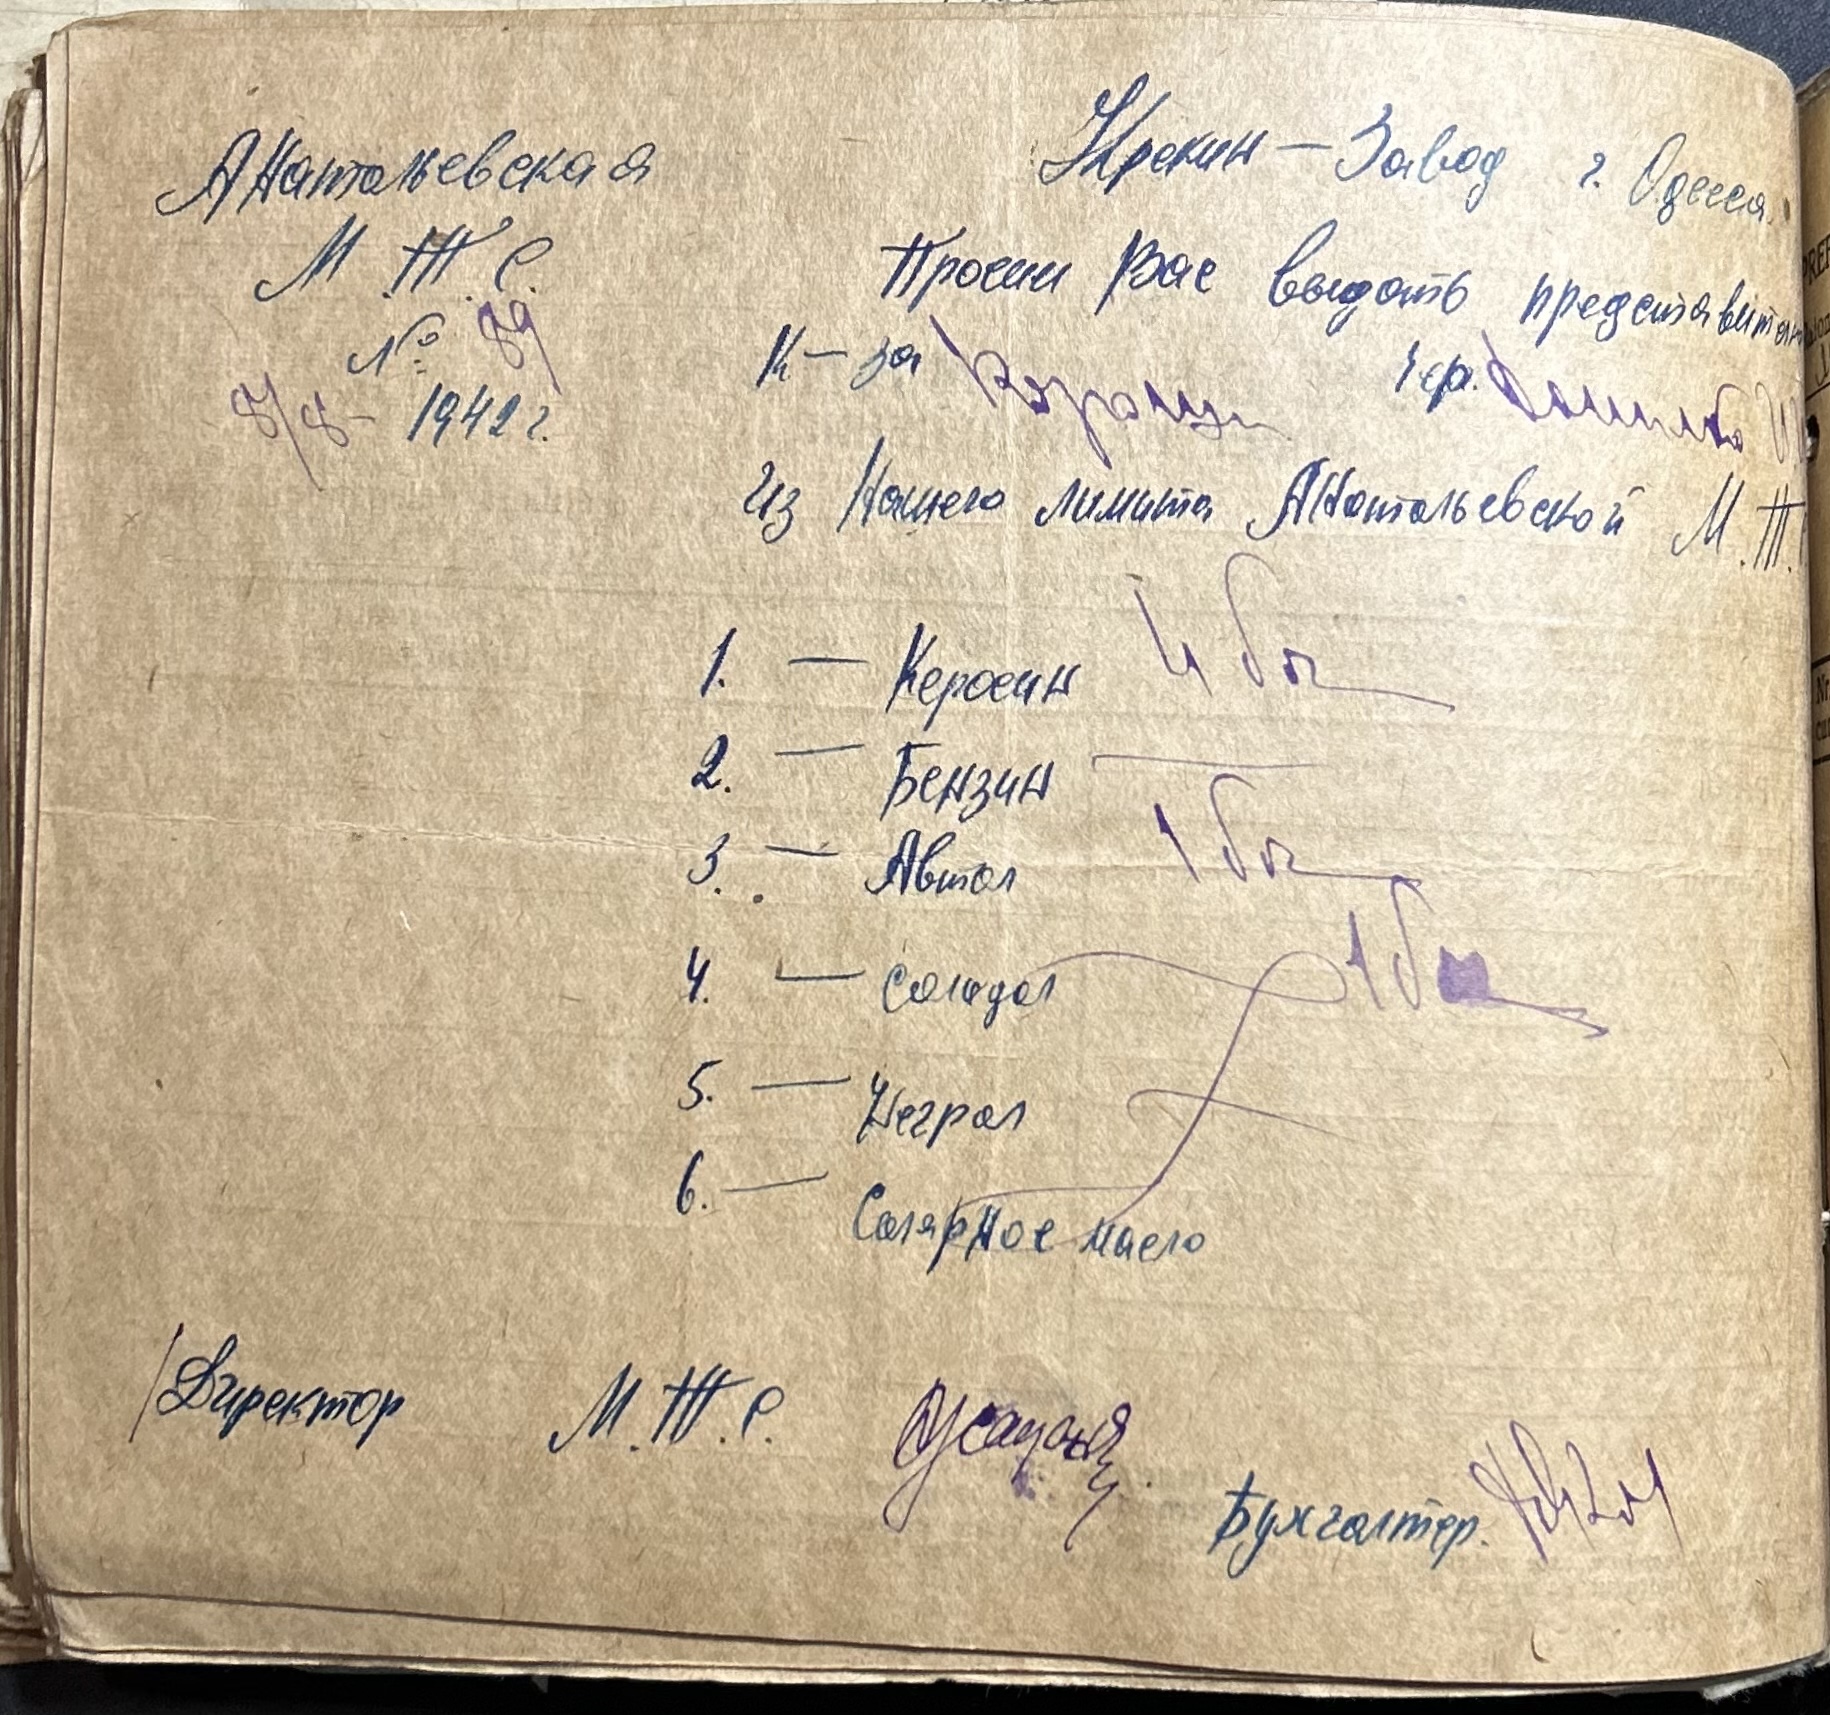 Анатольевская
М.Т.С.
№ 89
8/8- 1942 г.
Крекин - Завод г. Одесса.
Просим Вас выдать представител
К-за чер.
Из Нашего лимита Анатольевской М.Т.
1. — Керосин 4 боч
2. — Бензин —
3. — Автол 1 боч
4. — Солидол 1 боч
5. — Негрол
6. — Солярное масло
Директор М.Т.С.
Бухгалтер.